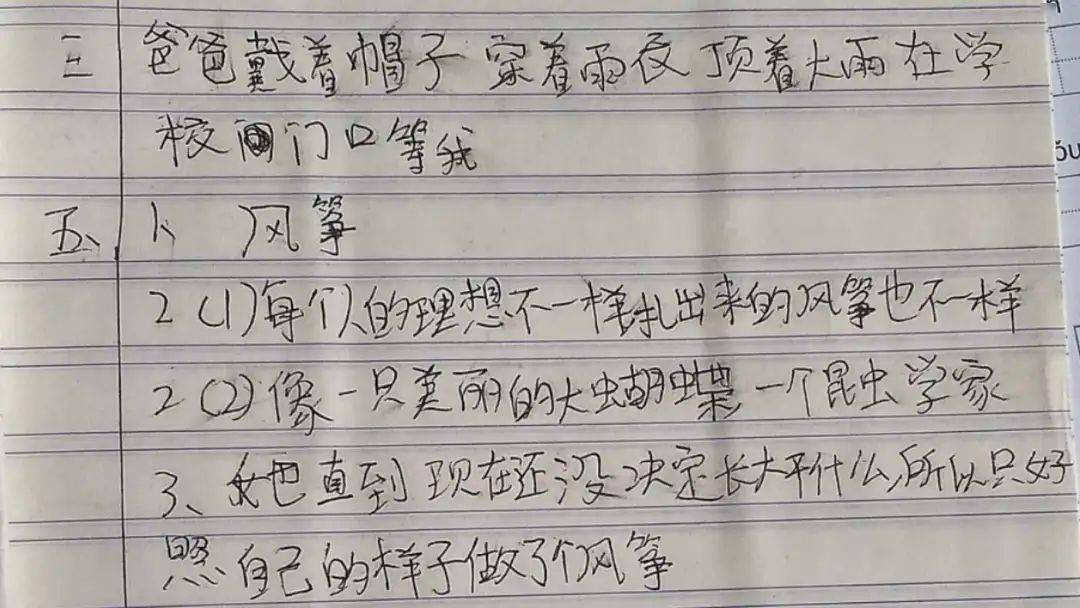 三 爸爸戴着帽子 穿着雨衣 顶着大雨在学
校门口等我
五、1、 风筝
2(1)每个人的理想不一样扎出来的风筝也不一样
2(2)像一只美丽的大蝴蝶 一个昆虫学家
3、她直到现在还没决定长大干什么,所以只好
照自己的样子做了个风筝